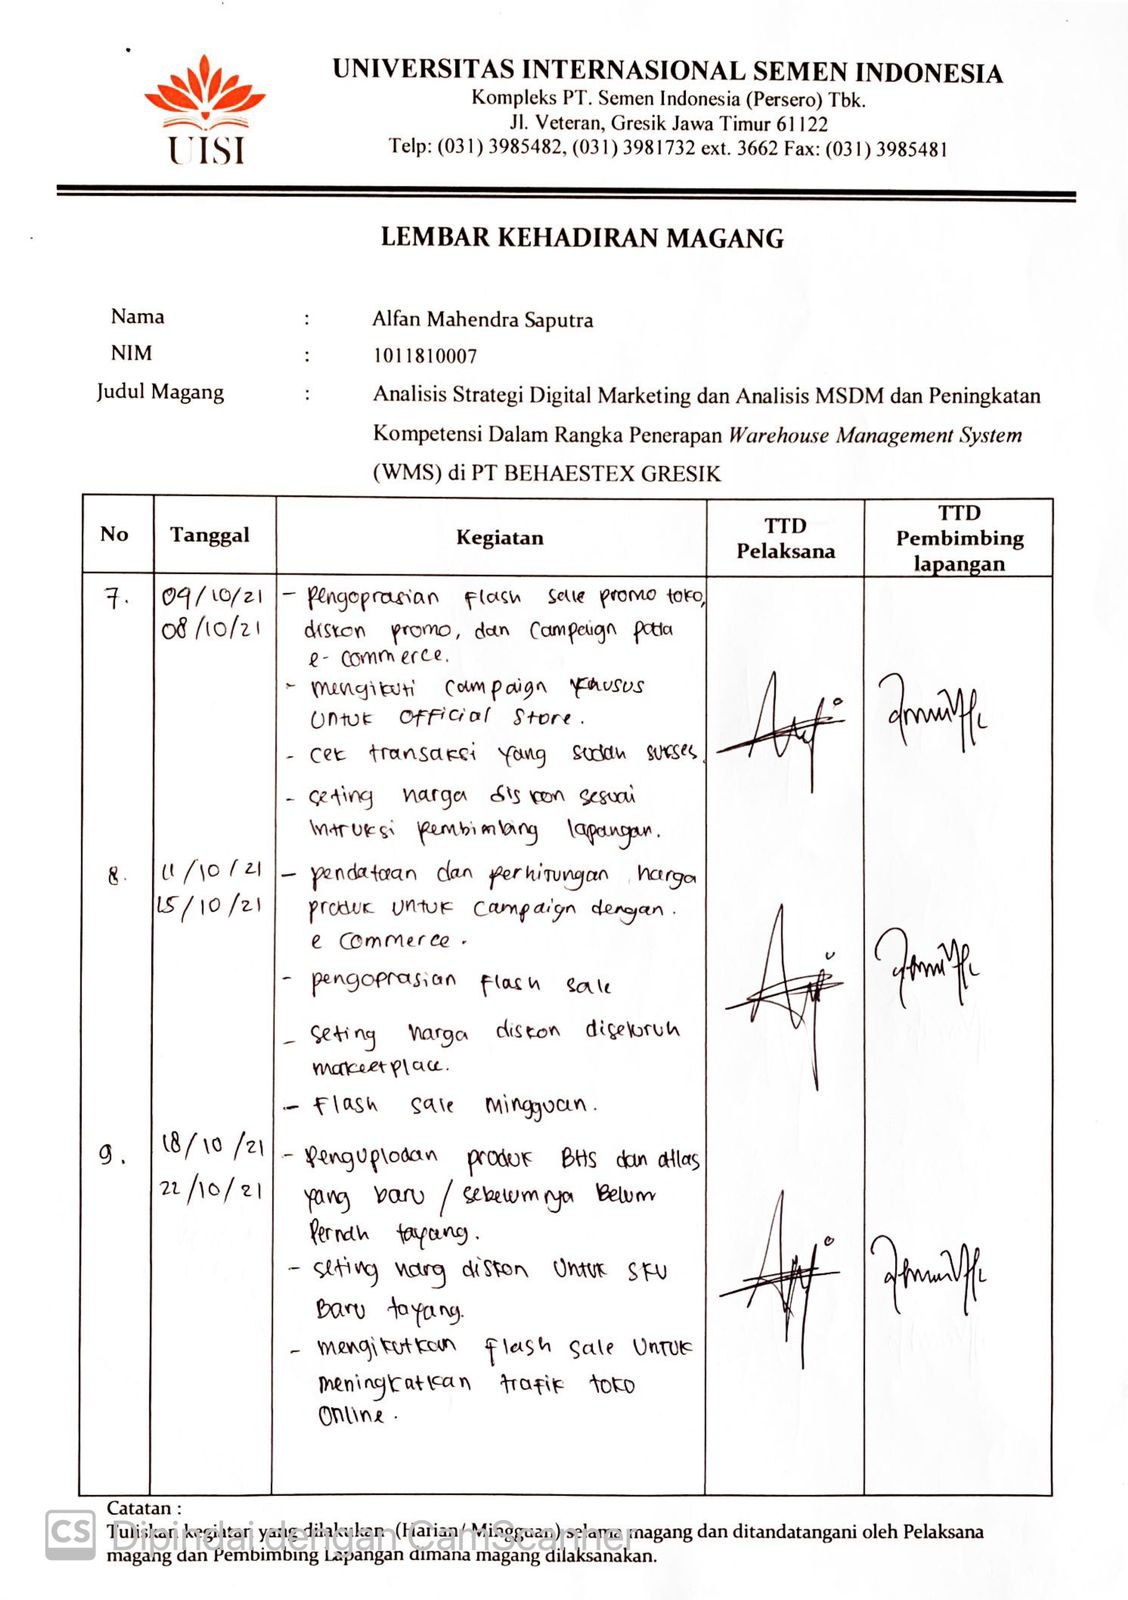 UISI
UNIVERSITAS INTERNASIONAL SEMEN INDONESIA
Kompleks PT. Semen Indonesia (Persero) Tbk.
Jl. Veteran, Gresik Jawa Timur 61122
Telp: (031) 3985482, (031) 3981732 ext. 3662 Fax: (031) 3985481
LEMBAR KEHADIRAN MAGANG
Nama : Alfan Mahendra Saputra
NIM : 1011810007
Judul Magang : Analisis Strategi Digital Marketing dan Analisis MSDM dan Peningkatan
Kompetensi Dalam Rangka Penerapan Warehouse Management System
(WMS) di PT BEHAESTEX GRESIK
No Tanggal Kegiatan TTD Pelaksana TTD Pembimbing lapangan
7. 09/10/21 - pengoprasian flash sale promo toko,
08/10/21 diskon promo, dan campaign pada
e-commerce.
- mengikuti campaign khusus
untuk official store.
- cek transaksi yang sudah sukses.
- seting harga diskon sesuai
intruksi pembimbing lapangan.
8. 11/10/21 - pendataan dan perhitungan harga
15/10/21 produk untuk campaign dengan.
e commerce.
- pengoprasian flash sale
- seting harga diskon diseluruh
makeetplace.
- flash sale mingguan.
9. 18/10/21 - penguplodan produk BHS dan atlas
22/10/21 yang baru / sebelumnya belum
pernah tayang.
- seting harg diskon untuk SKU
baru tayang.
- mengikutkan flash sale untuk
meningkatkan trafik toko
online.
Catatan :
Tuliskan kegiatan yang dilakukan (Harian/ Mingguan) selama magang dan ditandatangani oleh Pelaksana
magang dan Pembimbing Lapangan dimana magang dilaksanakan.
CS Dipindai dengan CamScanner